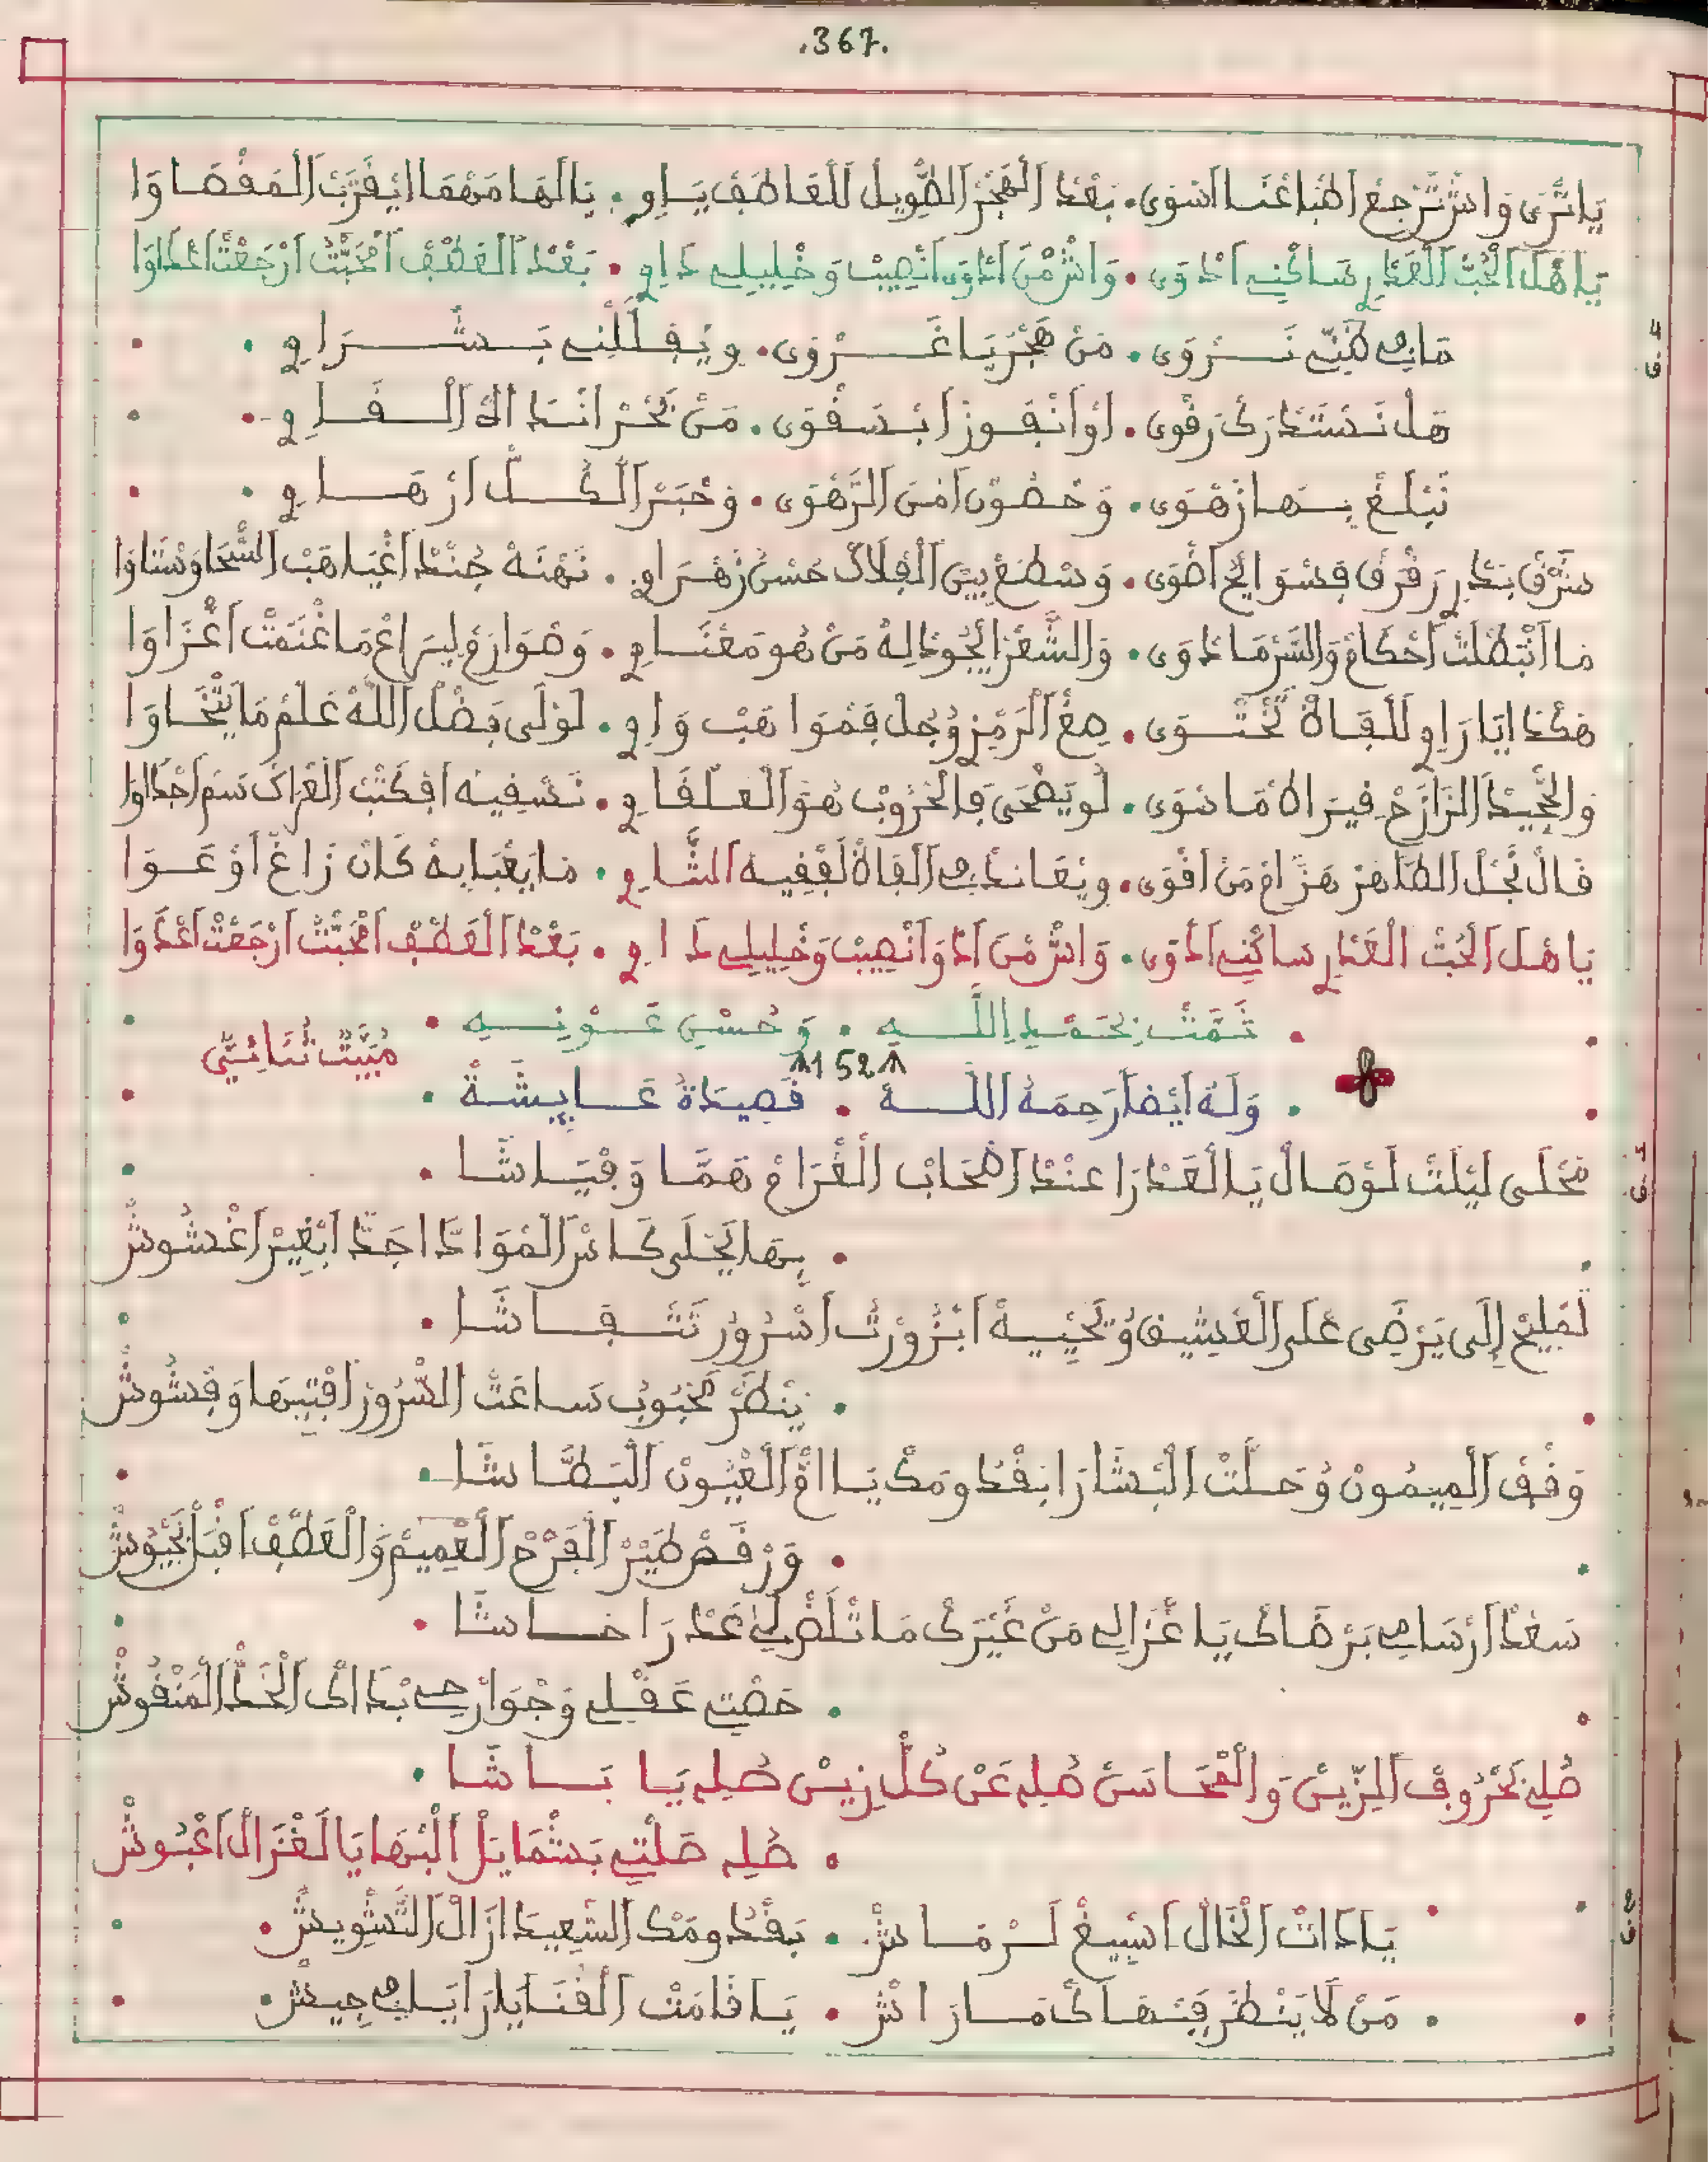 .367.
يَا تْرَى وَاشْ تَرْجَعْ اطْبَاعْنَا اسْوَى • بَعْدْ الْهَجْرْ الطْوِيلْ للعَاطَفْ يَاوِي • يَالَهَا مَهْمَا ايْقَرَّبْ الْمَقْصَاوَا
يَاهَلْ الْحُبّْ الْعَدْرِي سَاكْنِي ادْوَى • وَاشْ مْنَ ادْوَى انْصِيبْ وَخْلِيلِي دَاوِي • بَعْدْ الْعَطْفْ الْمْحَبَّتْ ارْجَعْتْ اعْدَاوَا
مَانِي ظَنِّي نَرْوَى • مَنْ هَجْرْ يَا غَرْوَى • وِيْقِلَّنِي بَشْرَاوِي •
هَلْ نَسْتَدْرَكْ رَقْوَى • اوْ انْفُوزْ ابْسَقْوَى • مَنْ بْحَرْ انْدَاكْ الْقَاوِي •
نَبْلَغْ بِهَا زَهْوَى • وَحْصُونْ امْنَ الرَّهْوَى • وَخْبَرْ الْكُلّْ ارْهَاوِي •
شَرْقْ بَدْرِي رَقْرَقْ فِسْوَايَحْ اضْوَى • وَسْطَعْ بِينْ الْفْلَاكْ حَسْنُ زَهْرَاوِي • نَهْتَهْ جُنْدْ اغْيَاهَبْ السْحَا وَشْتَاوَا
مَا انْبَطْلَتْ احْكَامْ وَالسَّرْ مَا دْوَى • وَالشَّعْرْ ايْجُودْ اِلَهْ مَنْ هُو مَعْنَاوِي • وَصْوَارَمْ لِيسَرَاعْ مَا غَنْمَتْ اعْزَاوَا
هَكْدَا يَا رَاوِي لَلْقَاهْ تَحْتْوَى • صِغْ الْرَمْزْ وُجُلْ فِمْوَاهَبْ وَاوِي • لَوْلَى بَضْلْ اللَّهْ عْلَمْ مَا يْتْخَاوَا
وَالجْحِيدْ الرَّازَحْ فِيرَاهْ مَا سْوَى • لُو يَضْحَى فِالْحْرُوبْ هُوَ الْعَلْقَاوِي • نَسْقِيهْ افْكَتْبْ الْعْرَاكْ سَمْ احْدَاوَا
قَالْ نَجْلْ الطَّاهَرْ هَزَّامْ مَنْ اقْوَى • وِيْعَانَدْنِي الْقَاهْ لَفْقِيهْ الشَّاوِي • مَا يَعْبَا بِهْ كَانْ زَاغْ اوْ عْوَا
يَاهَلْ الْحُبّْ الْعَدْرِي سَاكْنِي ادْوَى • وَاشْ مْنَ ادْوَا انْصِيبْ وَخْلِيلِي دَاوِي • بَعْدْ الْعَطْفْ الْمْحَبَّتْ ارْجَعْتْ اعْدَاوَا
• تَمَّتْ بِحَمْدِ اللَّهِ • وَحُسْنِ عَوْنِهِ •
مْبَيَّتْ ثُنَائِيّ
152
• وَلَهُ ايْضاً رَحِمَهُ اللَّهْ • قَصِيدَةُ عَايِشَةْ •
مَحْلَى لَيْلَتْ لَوْصَالْ يَالْعَدْرَا عَنْدْ اصْحَابْ الْغْرَامْ هَمَّا وَفْيَاشَا •
• بِهَا يَحْلَى كَاسْ الْمْوَادَّا جَدّْ ابْغِيرْ اغْشُوشْ
لَمْلِيحْ اِلَى يَرْضَى عْلَى الْعْشِيقْ وُيْحَيِّيهْ ابْزُورْتُ اسْرُورْ تَتْفَاشَا •
• يَنْظَرْ مَحْبُوبُ سَاعَتْ السْرُورْ افْتِيهَا وَفْشُوشْ
وَفْقْ الْمِيمُونْ وُحَلَّتْ الْبْشَارَا بَقْدُومَكْ يَا امّْ الْعْيُونْ الْبَطَّاشَا •
• وَرْقَصْ طَيْرْ الْفَرْحْ الْعْمِيمْ وَالْعَطْفْ اقْبَلْ بَجْيُوشْ
سَعْدْ ارْسَامِي بَرْضَاكْ يَا غْزَالِي مَنْ غَيْرَكْ مَا تْلَصْ لِي عَدْرَا خَاشَا •
• حَصْتِي عَقْلِي وَجْوَارْحِي بْدَاكْ الْخَدّْ الْمَنْقُوشْ
صُلِي بَحْرُوفْ الزِّينْ وَالْمْحَاسَنْ صُلِي عَنْ كُلّْ زِينْ صُلِي يَا بَاشَا •
• صُلِي صَلْتِي بَشْمَايَلْ الْبْهَا يَالَغْزَالْ اعْبُوشْ
يَا دَاتْ الْخَالْ اسْبِيغْ لَرْمَاشْ • بَقْدُومَكْ السْعِيدْ ازَالْ التَّشْوِيشْ •
• مَنْ لَا يَنْظَرْ فِبْهَاكْ مَا رَاشْ • يَا قَامَتْ الْقْنَا يَا رَايَتْ جِيشْ •